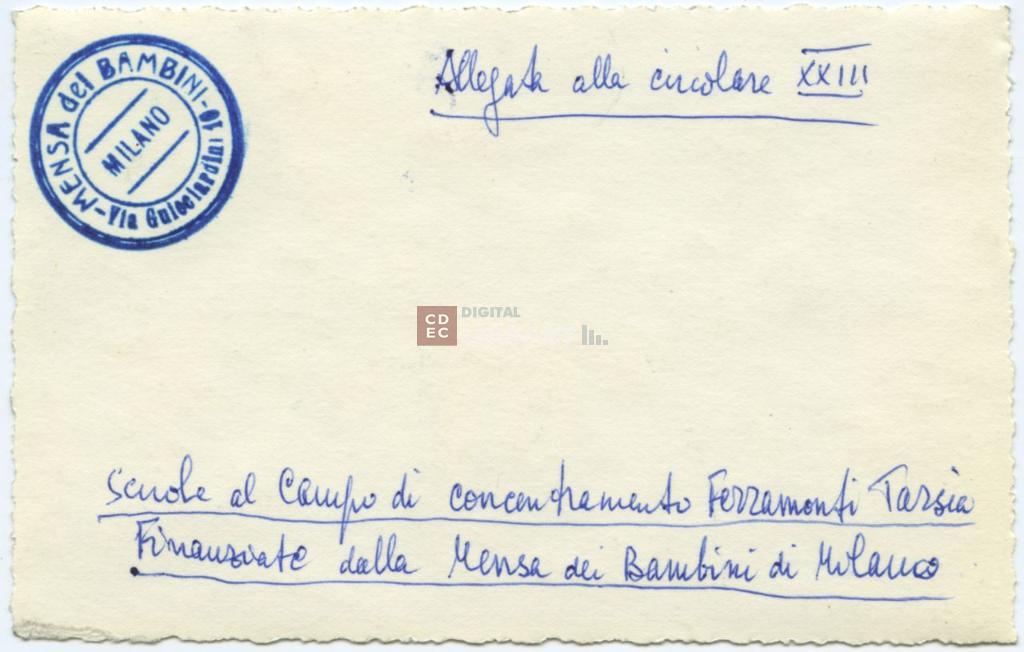 MENSA dei BAMBINI - Via Guicciardini 10
MILANO
Allegata alla circolare XXIII
CDEC
DIGITAL
Scuole al Campo di concentramento Ferramonti Tarsia
Finanziate dalla Mensa dei Bambini di Milano